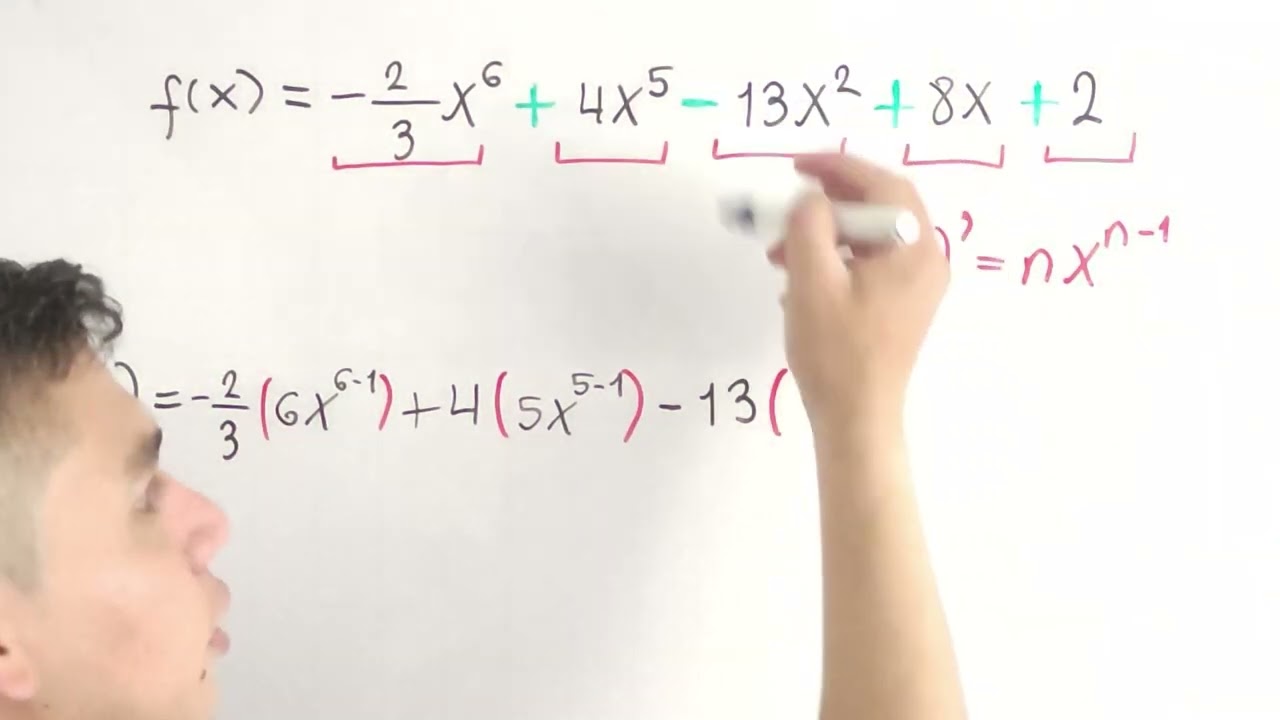 f(x) = -2/3 x⁶ + 4x⁵ - 13x² + 8x + 2
)' = nxⁿ⁻¹
) = -2/3 (6x⁶⁻¹) + 4(5x⁵⁻¹) - 13(